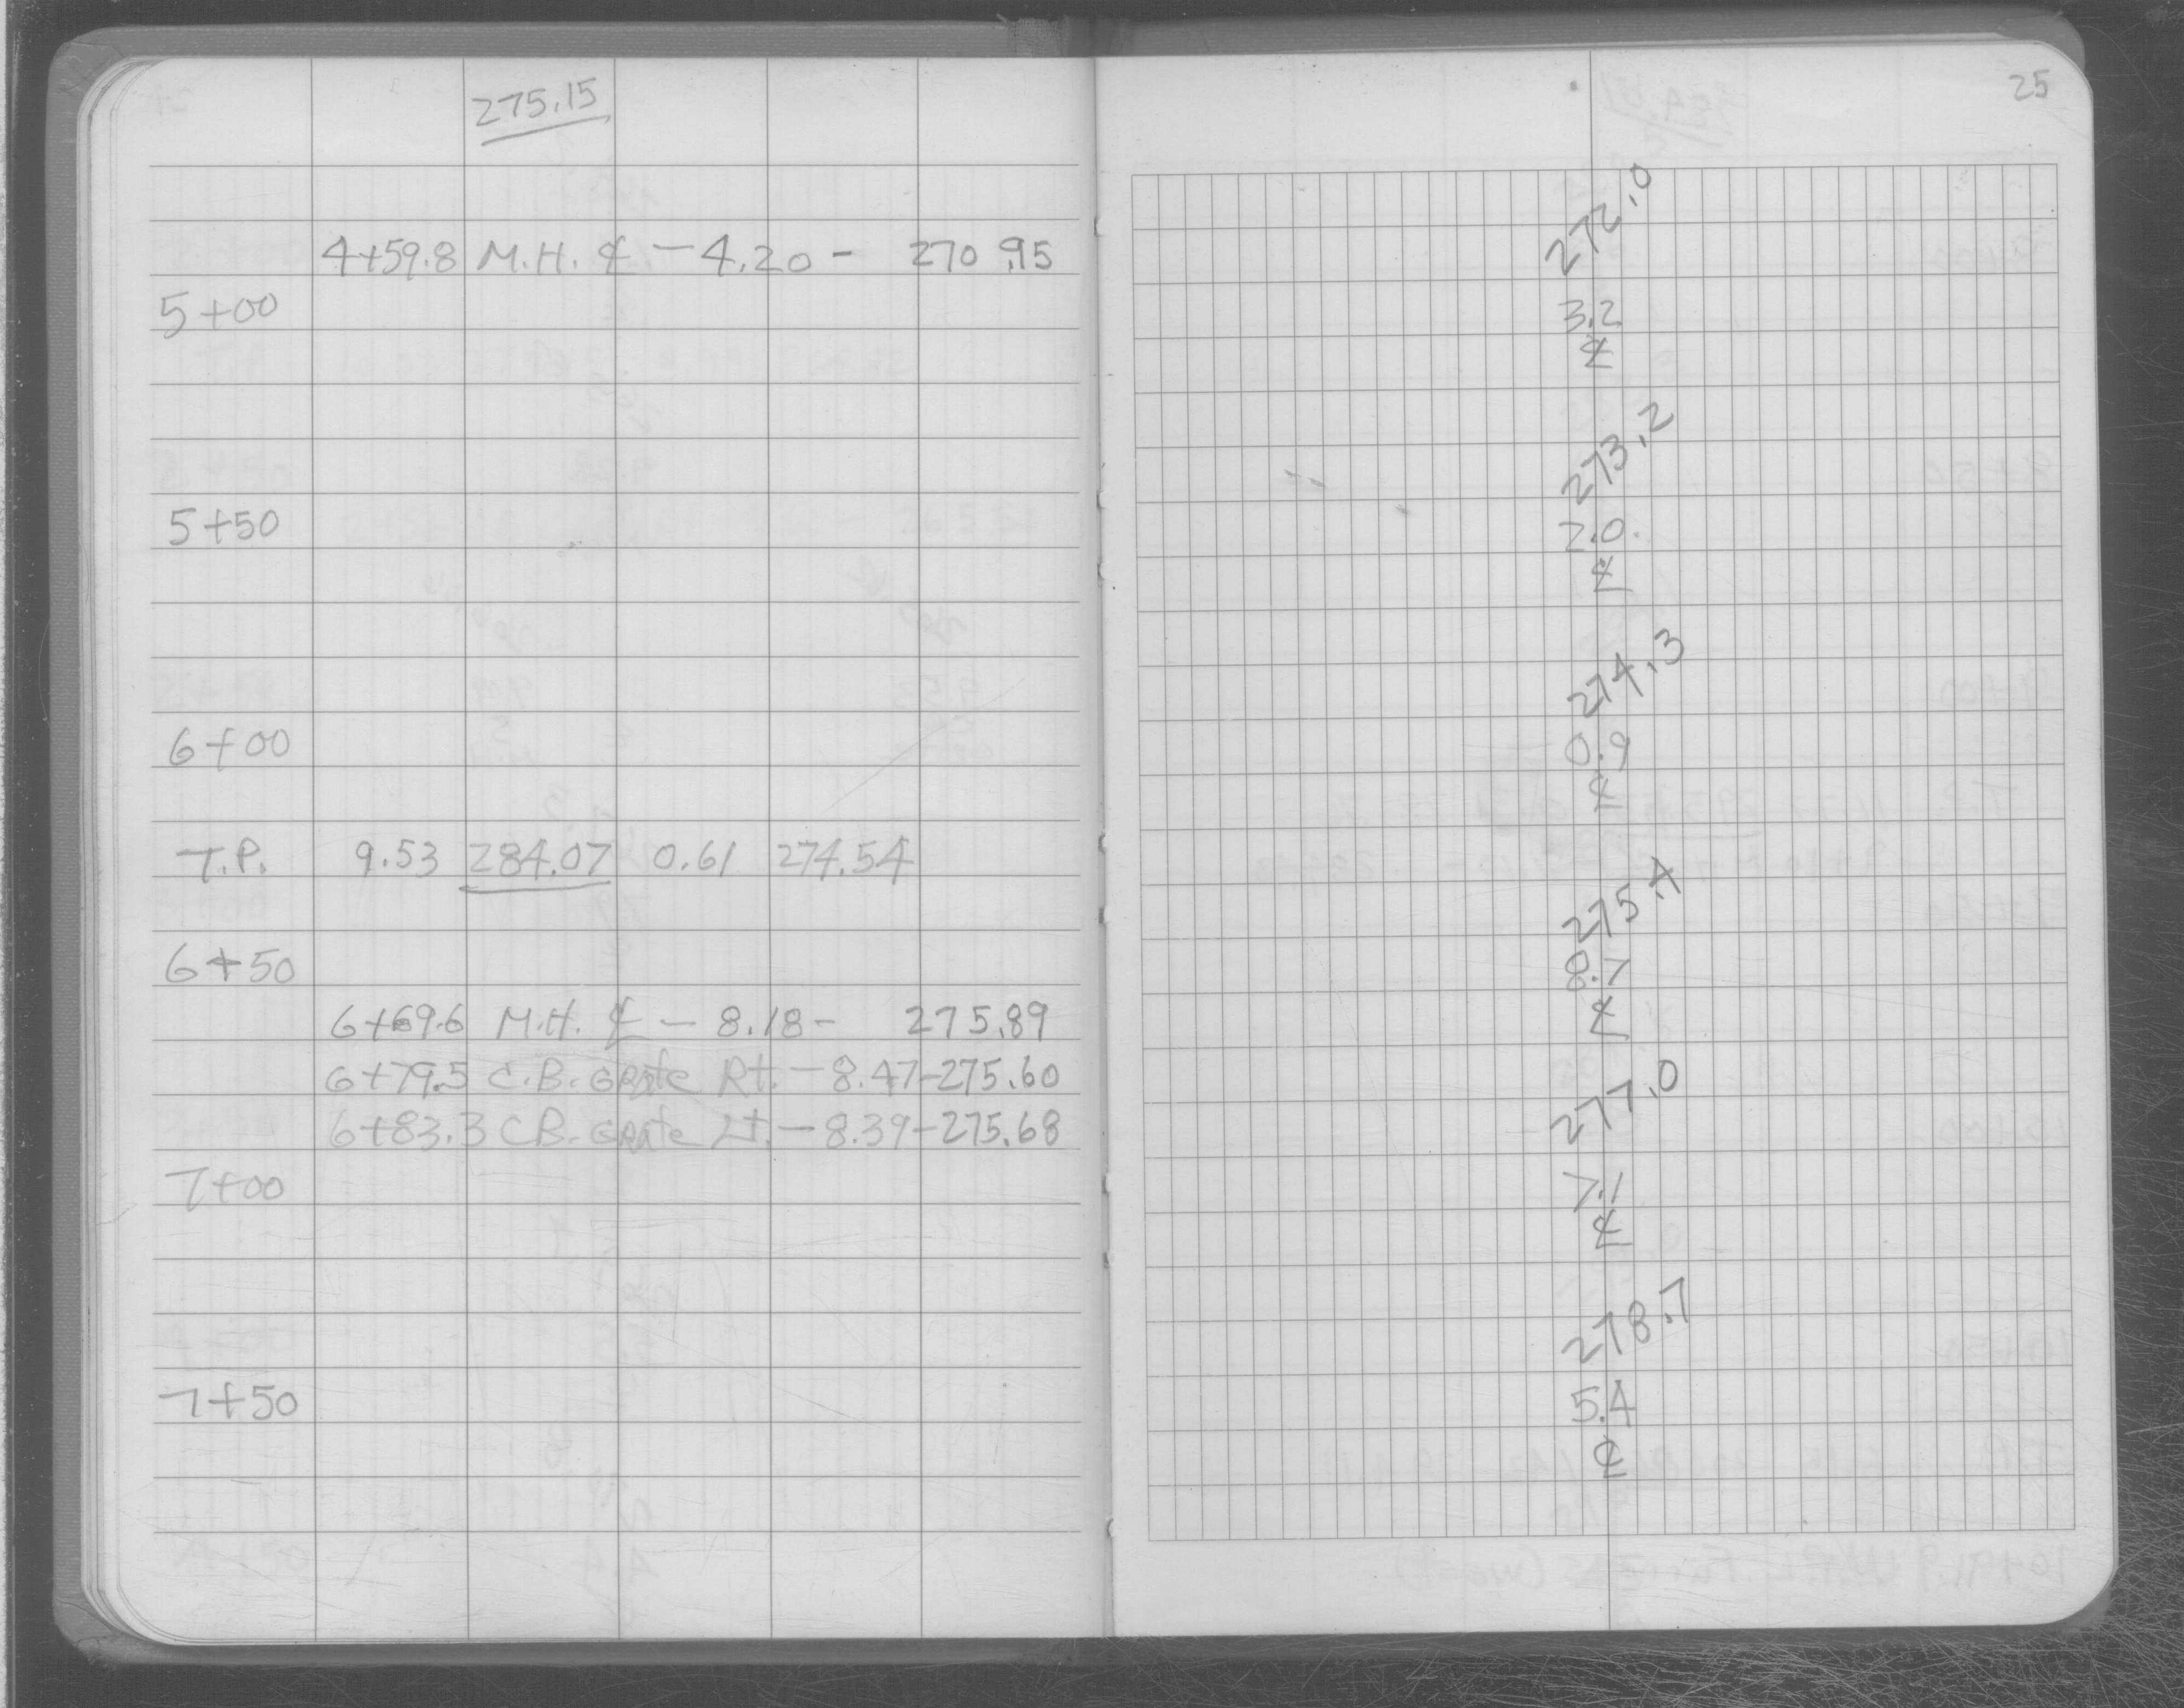 275.15
4+59.8 M.H. ℄ - 4.20 - 270.95
5+00
5+50
6+00
T.P. 9.53 284.07 0.61 274.54
6+50
6+69.6 M.H. ℄ - 8.18 - 275.89
6+79.5 C.B. Grate Rt. - 8.47 - 275.60
6+83.3 C.B. Grate Lt. - 8.39 - 275.68
7+00
7+50
25
272.0
3.2
℄
273.2
2.0
℄
274.3
0.9
℄
275.4
8.7
℄
277.0
7.1
℄
278.7
5.4
℄